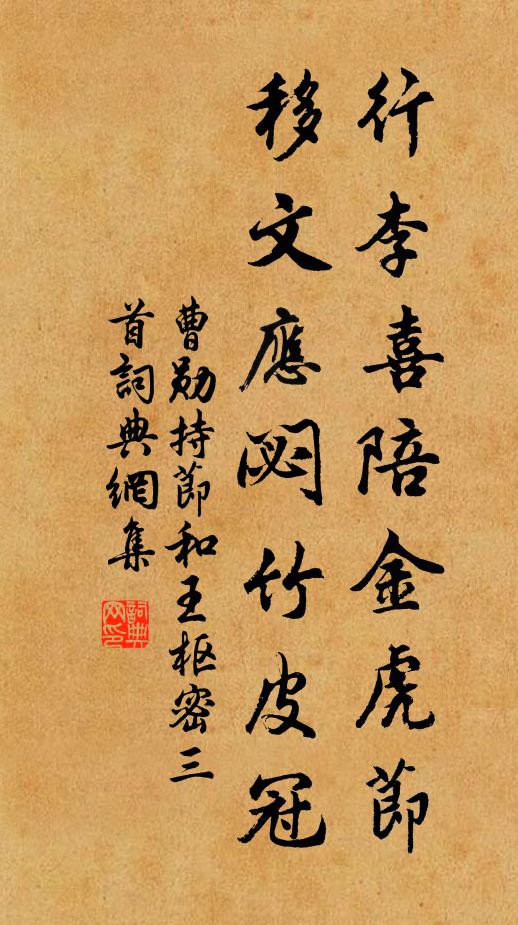 行李喜陪金虎節
移文應閟竹皮冠
曹勛持節和王枢密三
首詞典網集
詞典
网印